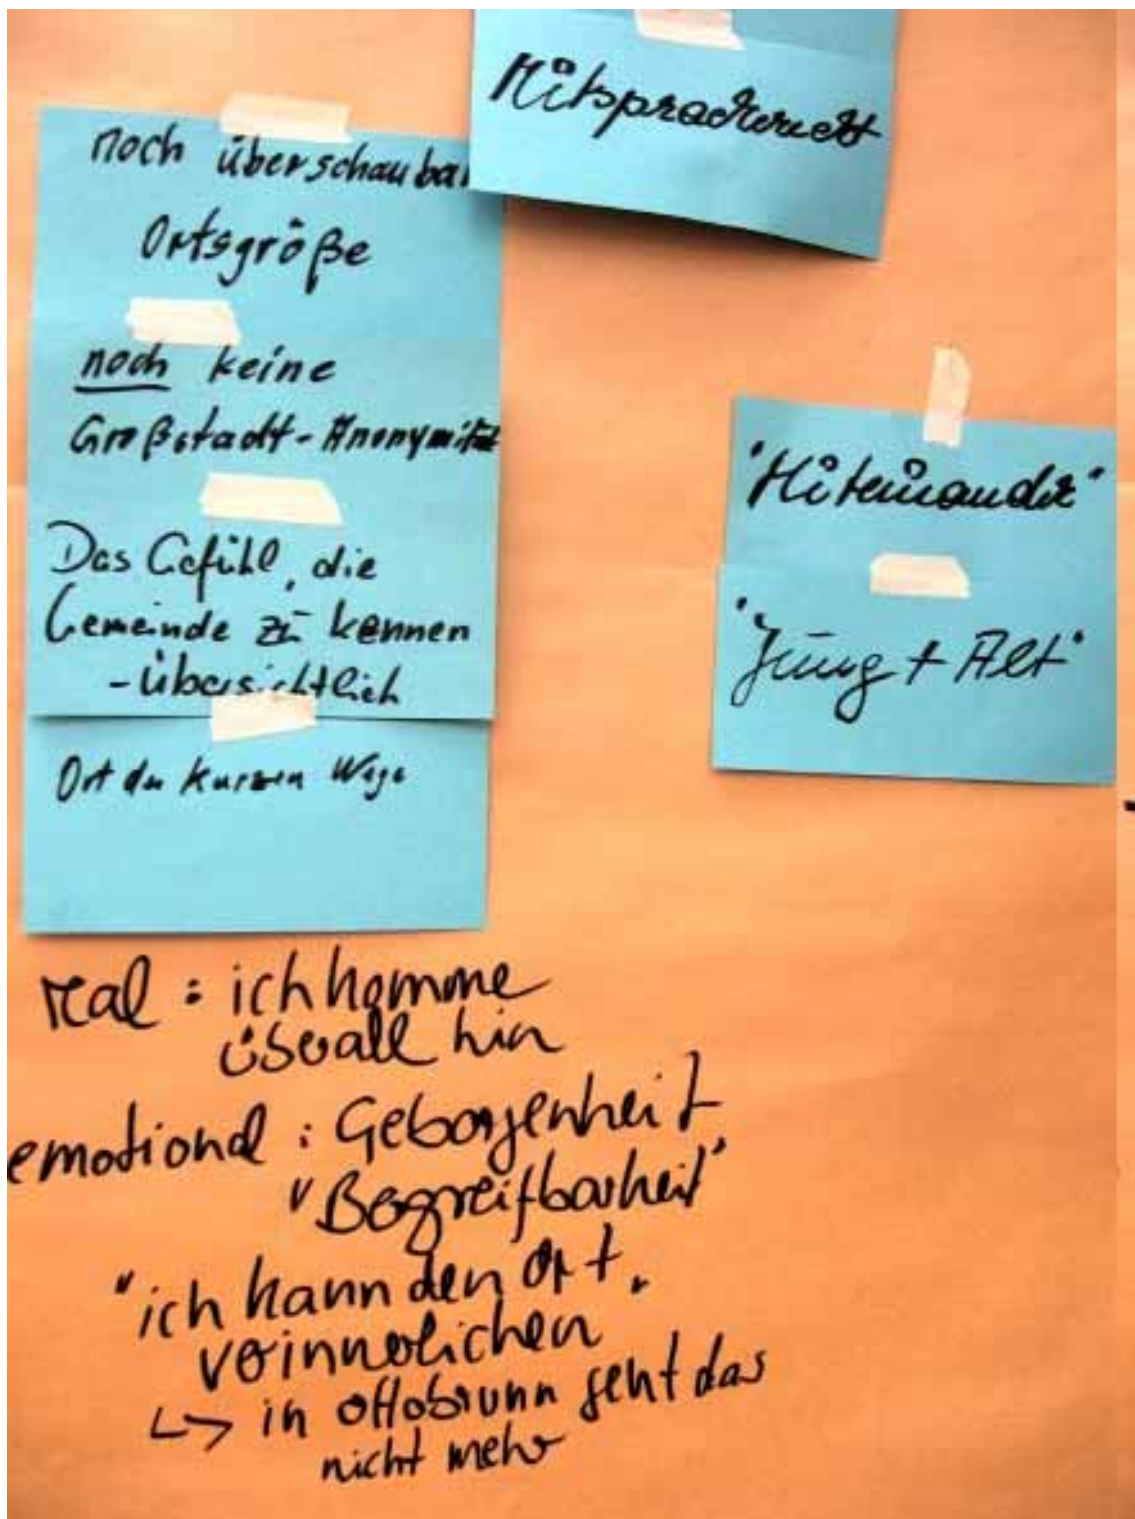 Mitspracherecht
noch überschaubar
Ortsgröße
noch keine
Großstadt-Anonymität
Das Gefühl, die
Gemeinde zu kennen
- übersichtlich
Ort der kurzen Wege
"Miteinander"
"Jung + Alt"
real : ich komme
überall hin
emotional : Geborgenheit
"Begreifbarkeit"
"ich kann den Ort
verinnerlichen"
↳ in Ottobrunn geht das
nicht mehr